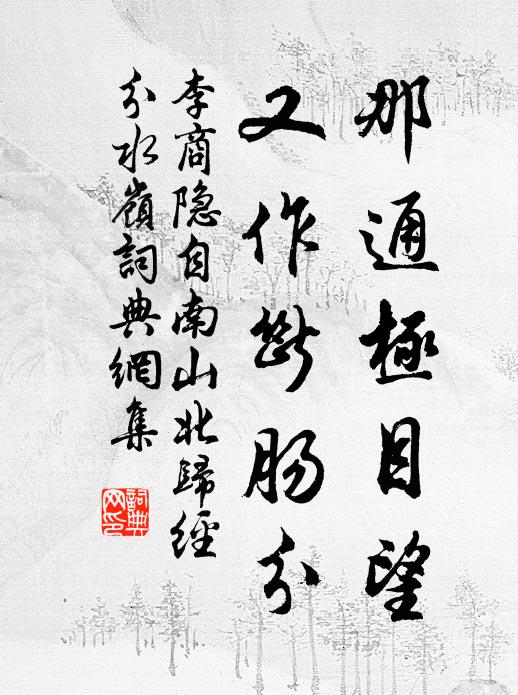 那通極目望
又作斷腸分
李商隐自南山北歸經
分水嶺詞典網集
詞典网印